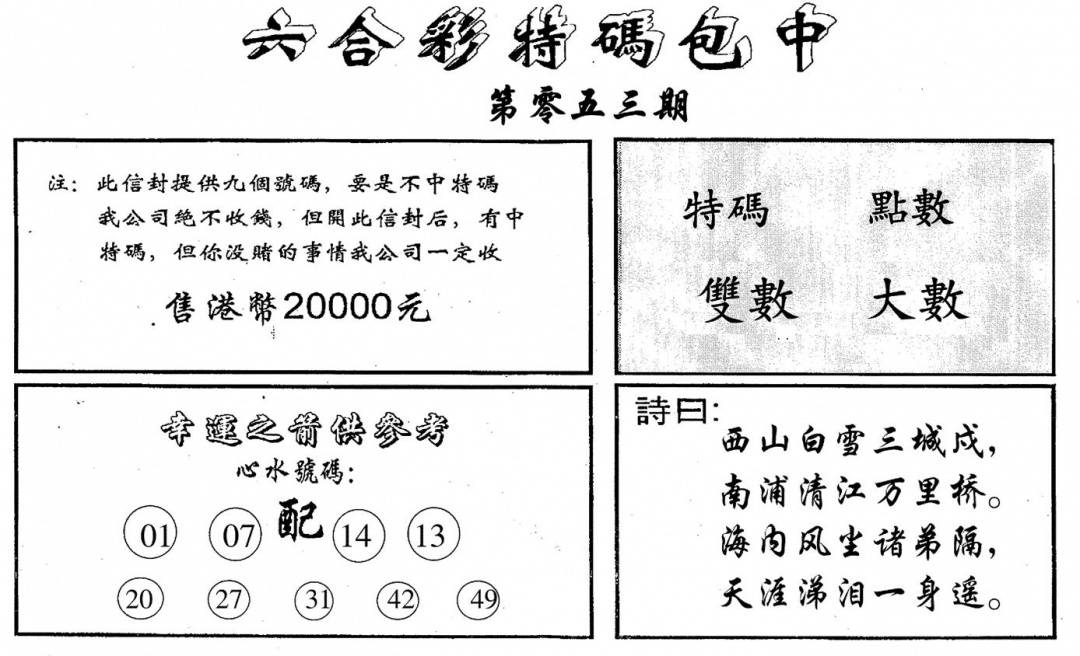 六合彩特碼包中
第零五三期
注：此信封提供九個號碼，要是不中特碼
我公司絕不收錢，但開此信封后，有中
特碼，但你没賭的事情我公司一定收
售港幣20000元
特碼 點數
雙數 大數
幸運之箭供參考
心水號碼：
01 07 配 14 13
20 27 31 42 49
詩曰：
西山白雪三城戍，
南浦清江万里桥。
海内风尘诸弟隔，
天涯涕泪一身遥。